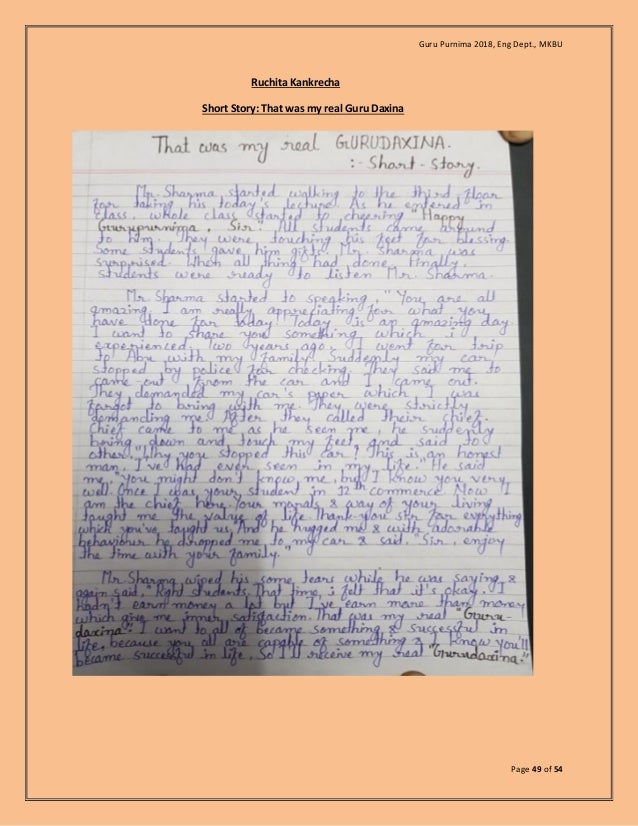 Guru Purnima 2018, Eng Dept., MKBU
Ruchita Kankrecha
Short Story: That was my real Guru Daxina
That was my real GURUDAXINA.
:- Short - Story.
Mr. Sharma started walking to the third floor
for taking his today's lecture. As he entered in
class, whole class started to cheering "Happy
Gurupurnima, Sir." All students came around
to him. They were touching his feet for blessing.
Some students gave him gifts. Mr. Sharma was
surprised. When all thing had done finally,
students were ready to listen Mr. Sharma.
Mr. Sharma started to speaking, "You are all
amazing. I am really appreciating for what you
have done for today. Today is an amazing day.
I want to share you something which i
experienced. Two years ago, I went for trip
to Abu with my family. Suddenly my car
stopped by police for checking. They said me to
came-out from the car and I came out.
They demanded my car's paper which I was
forgot to bring with me. They were strictly
demanding me. After they called their chief.
Chief came to me as he seen me, he suddenly
bring down and touch my feet and said to
other, "Why you stopped this car? This is an honest
man, I've had ever seen in my life." He said
me, "you might don't know me, but I know you very
well. Once I was your student in 12th commerce. Now I
am the chief here. Your morals & way of your living
taught me the value of life. Thank-you sir for everything
which you've taught us. And he hugged me & with adorable
behaviour he dropped me to my car & said, "Sir, enjoy
the time with your family."
Mr. Sharma wiped his some tears while he was saying &
again said, "Right students, That time i felt that it's okay. I
hadn't earn money a lot but I've earn more than money
which give me inner satisfaction. That was my real "Guru-
daxina." I want to all of became something & successful in
life, because you all are capable of something & I know you'll
became successful in life, so I'll receive my real "Gurudaxina."
Page 49 of 54